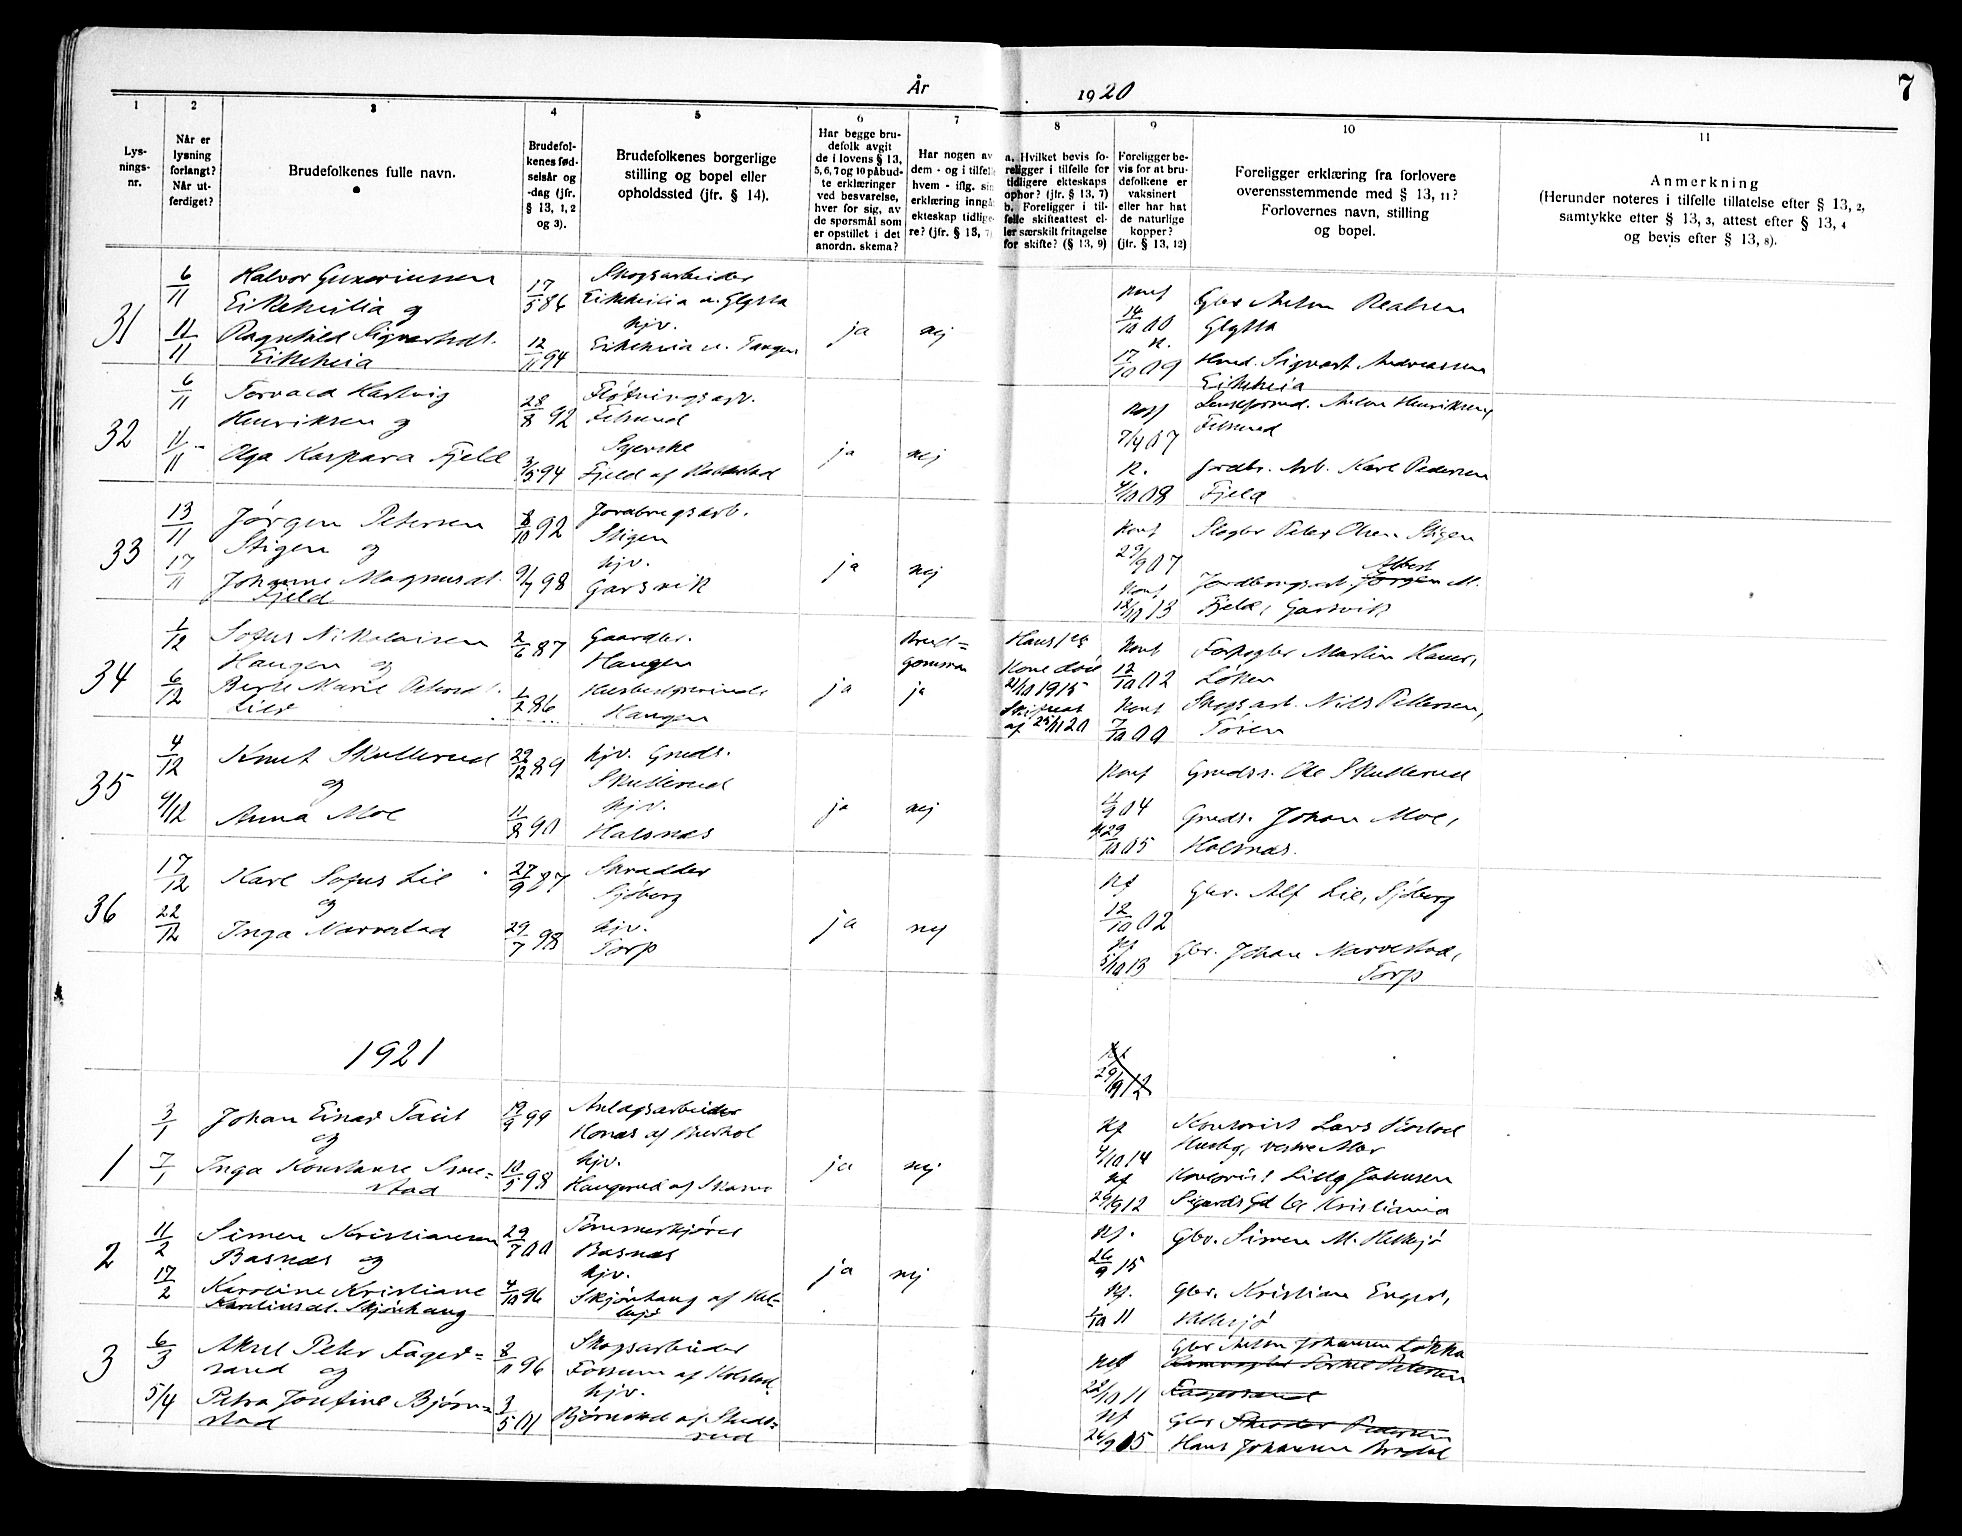 År 1920
7
1
2
3
4
5
6
7
8
9
10
11
Lys-
nings-
nr.
Når er
lysning
forlangt?
Når ut-
ferdiget?
Brudefolkenes fulle navn.
Brudefol-
kenes fød-
selsår og
-dag (jfr.
§ 13, 1, 2
og 3).
Brudefolkenes borgerlige
stilling og bopel eller
opholdssted (jfr. § 14).
Har begge bru-
defolk avgit
de i lovens § 13,
5, 6, 7 og 10 påbud-
te erklæringer
ved besvarelse,
hver for sig, av
de spørsmål som
er opstillet i det
anordn. skema?
Har nogen av
dem - og i tilfelle
hvem - iflg. sin
erklæring inngå
ekteskap tidlige-
re? (jfr. § 13, 7)
a. Hvilket bevis fo-
religger i tilfelle for
tidligere ekteskaps
ophør? (jfr. § 13, 7)
b. Foreligger i til-
felle skifteattest el-
ler særskilt fritagelse
for skifte? (§ 13, 9)
Foreligger be-
vis for at bru-
defolkene er
vaksinert
eller har hat
de naturlige
kopper?
(jfr. § 13, 12)
Foreligger erklæring fra forlovere
overensstemmende med § 13, 11?
Forlovernes navn, stilling
og bopel.
Anmerkning
(Herunder noteres i tilfelle tillatelse efter § 13, 2,
samtykke efter § 13, 3, attest efter § 13, 4
og bevis efter § 13, 8).
31
6/11
11/11
Halvor
Eikeheia og
Ragnhild Sigvartsdt.
Eikeheia
17/5 86
12/11 94
Skogsarbeider
Eikeheia u. Glytta
hjv.
Eikeheia u. Tangen
ja
nej
Konf
14/10 00
K.
17/10 09
Gbr Anton
Glytta
Hmd. Sigvart Andreassen
Eikeheia
32
6/11
11/11
Torvald Hartvig
Henriksen og
Olga Kaspara Fjeld
28/8 92
3/5 94
Fløtningsarb.
Syerske
Fjeld af
ja
nej
Konf
7/4 07
K.
4/10 08
Anton Henriksen,
Jordbr. Arb. Karl Pedersen
Fjeld
33
13/11
17/11
Jørgen Petersen
Stigen og
Johanne Magnusdt.
Fjeld
8/10 92
9/7 98
Jordbrugsarb.
Stigen
hjv.
Garsvik
ja
nej
Konf
29/9 07
Konf
12/10 13
Peter Olsen Stigen
Albert
Jordbrugsarb. Jørgen M.
Fjeld, Garsvik
34
1/12
6/12
Sofus Nikolaisen
Haugen og
Berte Marie Petersdt.
Lier
2/6 87
1/2 86
Gaardbr.
Haugen
Haugen
ja
Brud=
gommen
ja
Hans 1ste
Kone død
21/10 1915
Skifteat
af 25/11 20
Konf
12/10 02
Konf
7/10 00
Forpagter Martin Hansen,
Løken
Skogsarb. Nils Pettersen,
Tøien
35
4/12
9/12
Knut Skullerud
og
Anna Moe
22/12 89
11/8 90
hjv. Grnds.
Skullerud
hjv.
Halsnæs
ja
nej
Konf
4/9 04
Kf 29/10 05
Grnds. Ole Skullerud
Grnds. Johan Moe,
Halsnæs.
36
17/12
22/12
Karl Sofus Lie
og
Inga Narvestad
27/9 87
29/7 98
Skrædder
Sjøberg
hjv.
Torp
ja
nej
Kf
12/10 02
Kf
5/10 13
Gbr. Alf Lie, Sjøberg
Gbr. Johan Narvestad,
Torp
1921
29/9 12
1
3/1
7/1
Johan Einar
og
Inga Konstanse Sme=
stad
19/9 99
10/5 98
Anlægsarbeider
hjv.
Haugerud af
ja
nej
Kf
4/10 14
Kf
29/9 12
Kontorist Lars
Kontorist Lilly Johnsen
Kristiania
2
11/2
17/2
Simen Kristiansen
Basnæs og
Karoline Kristiane
Karlinsdt. Skjønhaug
29/7 00
4/10 96
Tømmerkjører
Basnæs
hjv.
Skjønhaug af Hel=
lesjø
ja
nej
Kf.
26/9 15
Kf.
1/10 11
Gbr. Simen M. Hellesjø
Gbr. Kristian Enger,
Hellesjø
3
6/3
5/4
Aksel Peter Fager=
sand og
Petra Josefine Bjørn=
stad
8/11 96
3/5 01
Skogsarbeider
Fossum af Kolstad.
hjv.
Bjørnstad af Skuls=
rud
Kf
22/10 11
Kf
26/9 15
Gbr Anton Johansen Løkka
Petersen
Fagersand
Gbr Pedersen
Hans Johansen